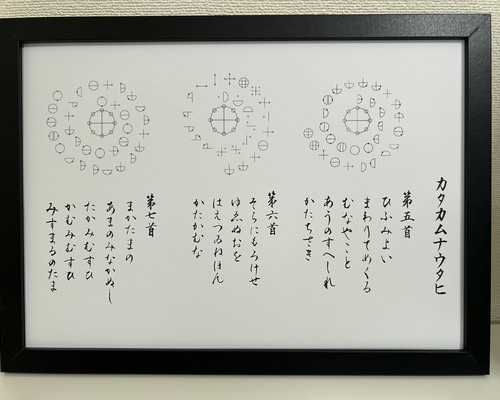 カタカムナウタヒ
第五首
ひふみよい
まわりてめくる
むなやこと
あうのすへしれ
かたちさき
第六首
そらにもろけせ
ゆゑぬおを
はえつゐねほん
かたかむな
第七首
まかたまの
あまのみなかぬし
たかみむすひ
かむみむすひ
みすまるのたま